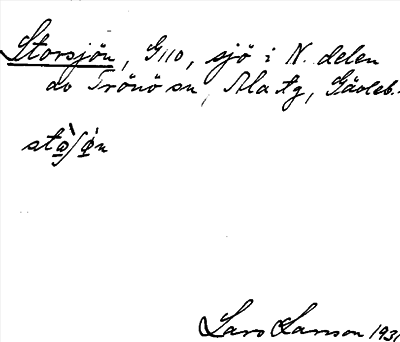 Storsjön, G110, sjö i N. delen
av Trönö sn, Ala tg, Gävleb.
Lars Larsson 1931